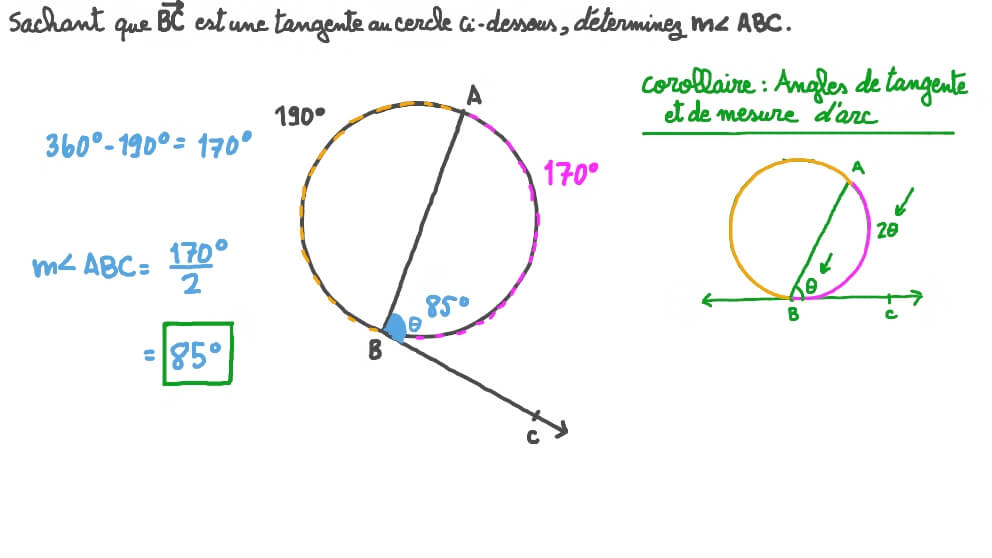 Sachant que BC est une tangente au cercle ci-dessous, déterminez m∠ ABC.
corollaire : Angles de tangente
et de mesure d'arc
190°
A
360° - 190° = 170°
170°
A
2θ
m∠ ABC = 170°/2
85°
θ
θ
B
C
= 85°
B
C